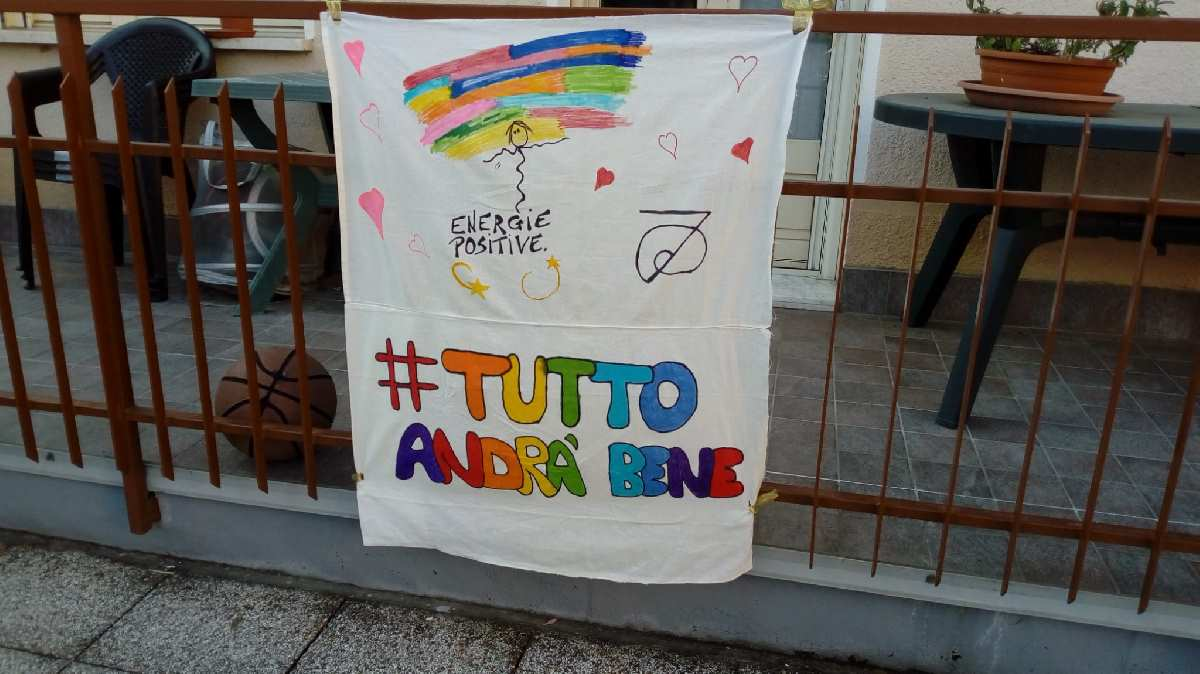 ENERGIE
POSITIVE.
#TUTTO
ANDRÀ BENE